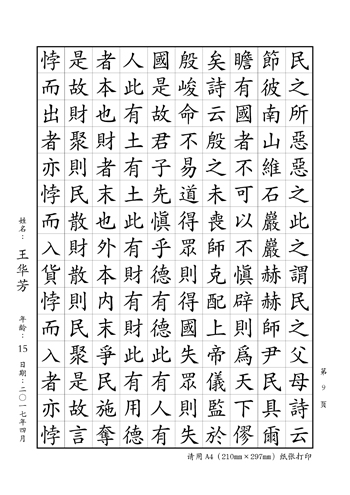 民之所惡惡之此之謂民之父母詩云
節彼南山維石巖巖赫赫師尹民具爾
瞻有國者不可以不愼辟則爲天下僇
矣詩云殷之未喪師克配上帝儀監於
殷峻命不易道得眾則得國失眾則失
國是故君子先愼乎德有德此有人有
人此有土有土此有財有財此有用德
者本也財者末也外本內末爭民施奪
是故財聚則民散財散則民聚是故言
悖而出者亦悖而入貨悖而入者亦悖
姓名：王华芳 年龄：15 日期：二〇一七年四月
第 9 页
请用 A4（210mm×297mm）纸张打印